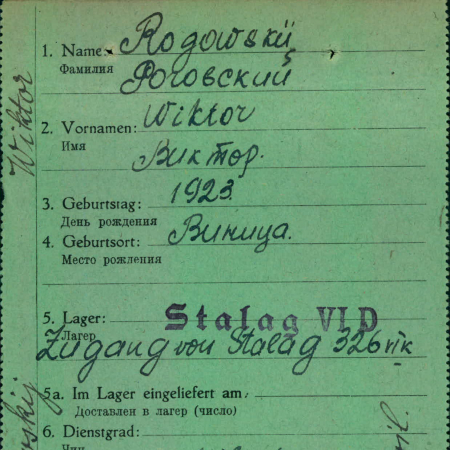 1. Name: Rogowskij
Фамилия Роговский
2. Vornamen: Wiktor
Имя Виктор.
3. Geburtstag: 1923.
День рождения
4. Geburtsort: Виница.
Место рождения
5. Lager: Stalag VI D
Лагер
Zugang von Stalag 326 VI K
5a. Im Lager eingeliefert am:
Доставлен в лагер (число)
6. Dienstgrad:
Чин
Wiktor